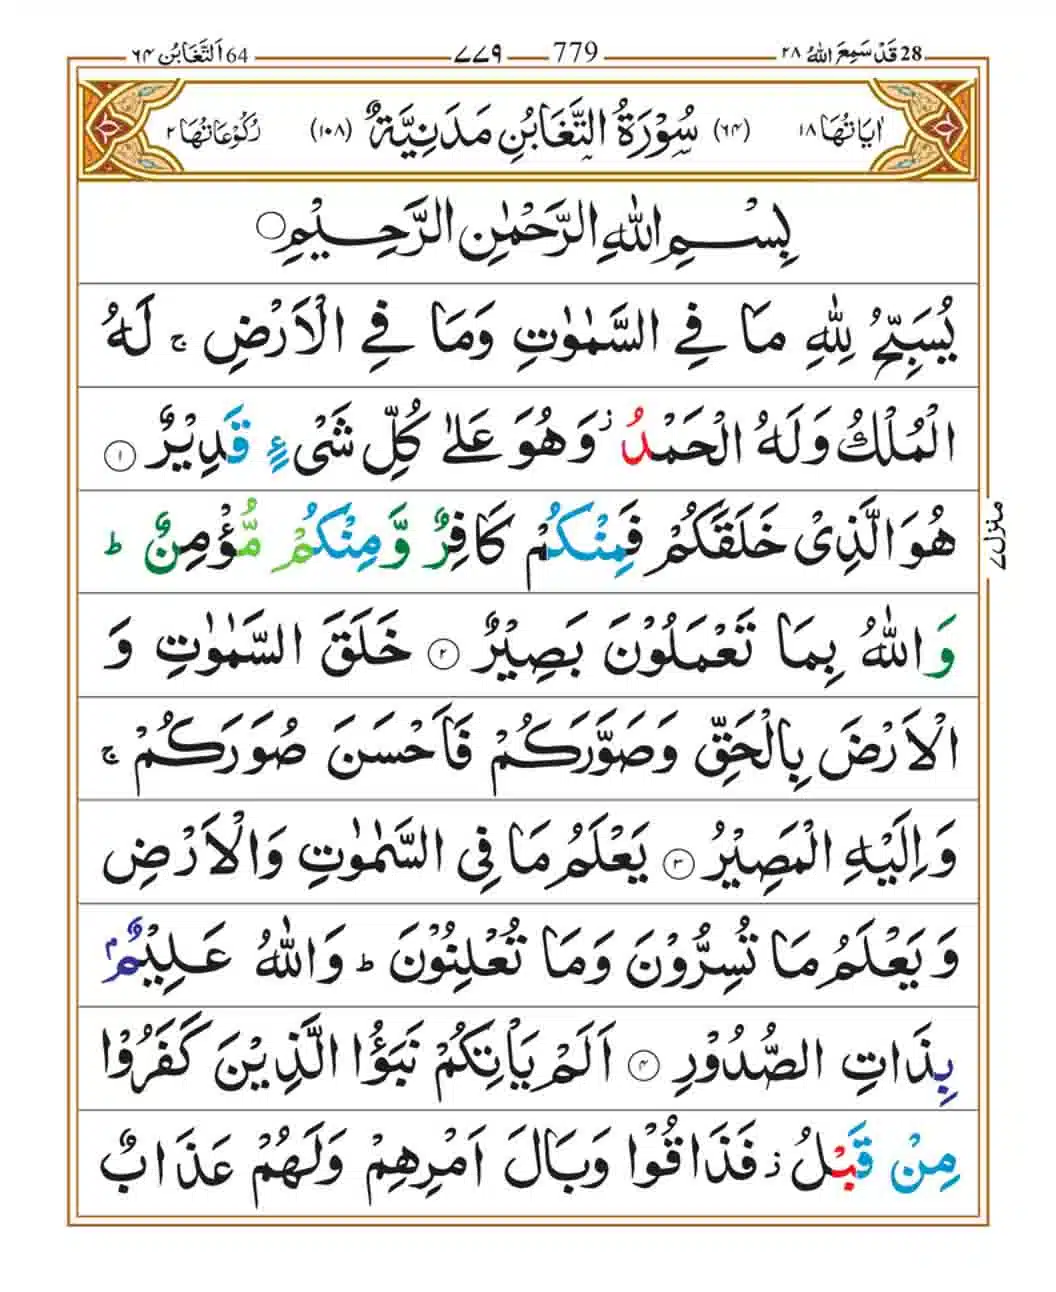 28 قَدْ سَمِعَ اللهُ ٢٨ 779 ٧٧٩ 64 اَلتَّغَابُن ٦٤
اٰيَاتُهَا ١٨ (٦٤) سُوْرَةُ التَّغَابُنِ مَدَنِيَّةٌ (١٠٨) رُكُوْعَاتُهَا ٢
بِسْمِ اللّٰهِ الرَّحْمٰنِ الرَّحِيْمِ ○
يُسَبِّحُ لِلّٰهِ مَا فِي السَّمٰوٰتِ وَمَا فِي الْاَرْضِ ۚ لَهُ
الْمُلْكُ وَلَهُ الْحَمْدُ ؗ وَهُوَ عَلٰى كُلِّ شَىْءٍ قَدِيْرٌ ﴿١﴾
هُوَ الَّذِىْ خَلَقَكُمْ فَمِنْكُمْ كَافِرٌ وَّمِنْكُمْ مُّؤْمِنٌ ؕ
وَاللّٰهُ بِمَا تَعْمَلُوْنَ بَصِيْرٌ ﴿٢﴾ خَلَقَ السَّمٰوٰتِ وَ
الْاَرْضَ بِالْحَقِّ وَصَوَّرَكُمْ فَاَحْسَنَ صُوَرَكُمْ ۚ
وَاِلَيْهِ الْمَصِيْرُ ﴿٣﴾ يَعْلَمُ مَا فِى السَّمٰوٰتِ وَالْاَرْضِ
وَيَعْلَمُ مَا تُسِرُّوْنَ وَمَا تُعْلِنُوْنَ ؕ وَاللّٰهُ عَلِيْمٌۢ
بِذَاتِ الصُّدُوْرِ ﴿٤﴾ اَلَمْ يَاْتِكُمْ نَبَؤُا الَّذِيْنَ كَفَرُوْا
مِنْ قَبْلُ ؗ فَذَاقُوْا وَبَالَ اَمْرِهِمْ وَلَهُمْ عَذَابٌ
منزل ٧